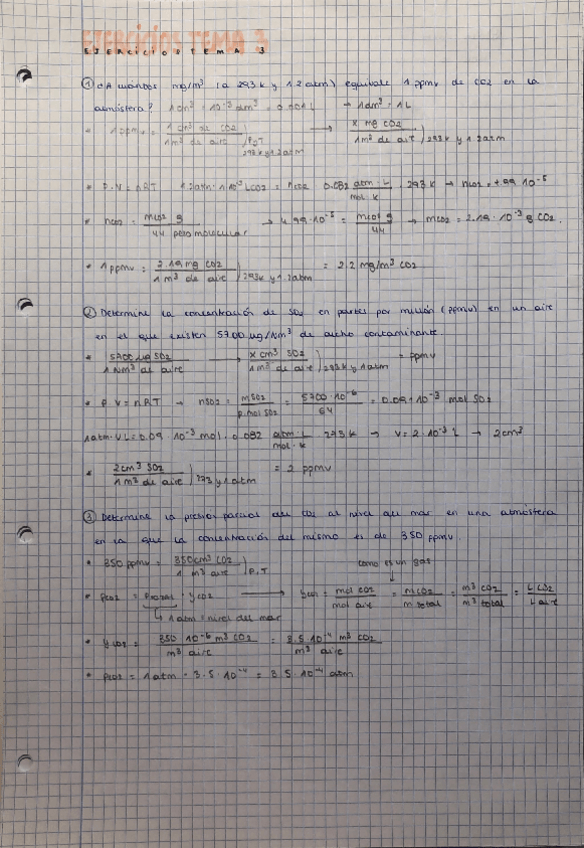 EJERCICIOS TEMA 3
EJERCICIOS TEMA 3
① ¿A cuántos mg/m³ (a 293k y 1.2atm) equivale 1 ppmv de CO2 en la
atmósfera? 1cm³ = 10⁻³ dm³ = 0.001L → 1dm³ = 1L
• 1ppmv = 1cm³ de CO2 / 1m³ de aire ) P,T 293k y 1.2atm → x mg CO2 / 1m³ de aire ) 293k y 1.2atm
• P.V = nRT 1.2atm · 1·10⁻³ L CO2 = nCO2 0.082 atm·L / mol·k · 293k → nCO2 = 4.99·10⁻⁵
• nCO2 = mCO2 g / 44 peso molecular → 4.99·10⁻⁵ = mCO2 g / 44 → mCO2 = 2.19·10⁻³ g CO2.
• 1ppmv = 2.19 mg CO2 / 1m³ de aire ) 293k y 1.2atm = 2.2 mg/m³ CO2
② Determine la concentración de SO2 en partes por millón (ppmv) en un aire
en el que existen 5700 µg/Nm³ de dicho contaminante.
• 5700 µg SO2 / 1Nm³ de aire → x cm³ SO2 / 1m³ de aire ) 273k y 1atm = ppmv
• P.V = nRT → nSO2 = mSO2 / p.mol SO2 = 5700·10⁻⁶ / 64 = 0.09·10⁻³ mol SO2
1atm·V L = 0.09·10⁻³ mol · 0.082 atm·L / mol·k 273k → V = 2·10⁻³ L → 2cm³
• 2cm³ SO2 / 1m³ de aire ) 273 y 1atm = 2 ppmv
③ Determine la presión parcial del CO2 al nivel del mar en una atmósfera
en la que la concentración del mismo es de 350 ppmv.
• 350 ppmv = 350cm³ CO2 / 1 m³ aire ) P,T como es un gas
• pCO2 = Ptotal · yCO2 → yCO2 = mol CO2 / mol aire = nCO2 / n total = m³ CO2 / m³ total = L CO2 / L aire
↳ 1atm = nivel del mar
• yCO2 = 350·10⁻⁶ m³ CO2 / m³ aire = 3.5·10⁻⁴ m³ CO2 / m³ aire
• pCO2 = 1atm · 3.5·10⁻⁴ = 3.5·10⁻⁴ atm